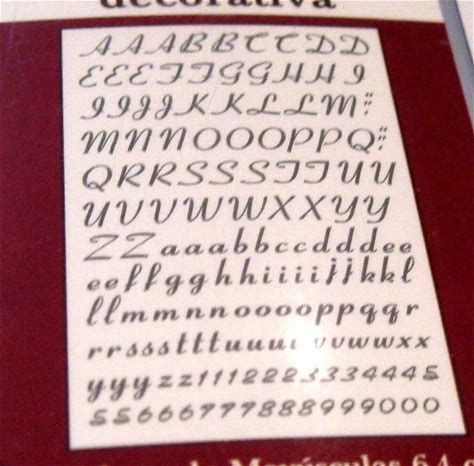 decorativa
AAABBCCDD
EEEFFGGHHI
IIJJKKLLM"
MNNNOOOPPQ"
QRRSSSTTUU
UVVWWXXYY
ZZaaabbccdddee
eeffgghhiiiijjkkl
llmmnnooooppqqr
rrssstttuuu vvwwxx
yyyzz11122233344445
55666777888999000
Mayúsculas 6,4